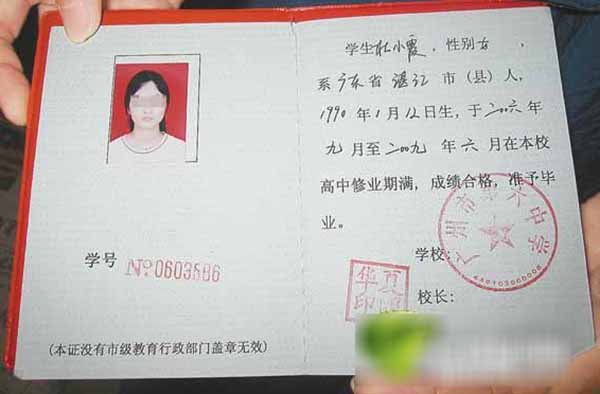 学号 № 0603586
(本证没有市级教育行政部门盖章无效)
学生杜小霞，性别女，
系广东省湛江市(县)人，
1990年1月12日生，于二〇〇六年
九月至二〇〇九年六月在本校
高中修业期满，成绩合格，准予毕
业。
学校：
广州市第六中学
校长：
华夏
印